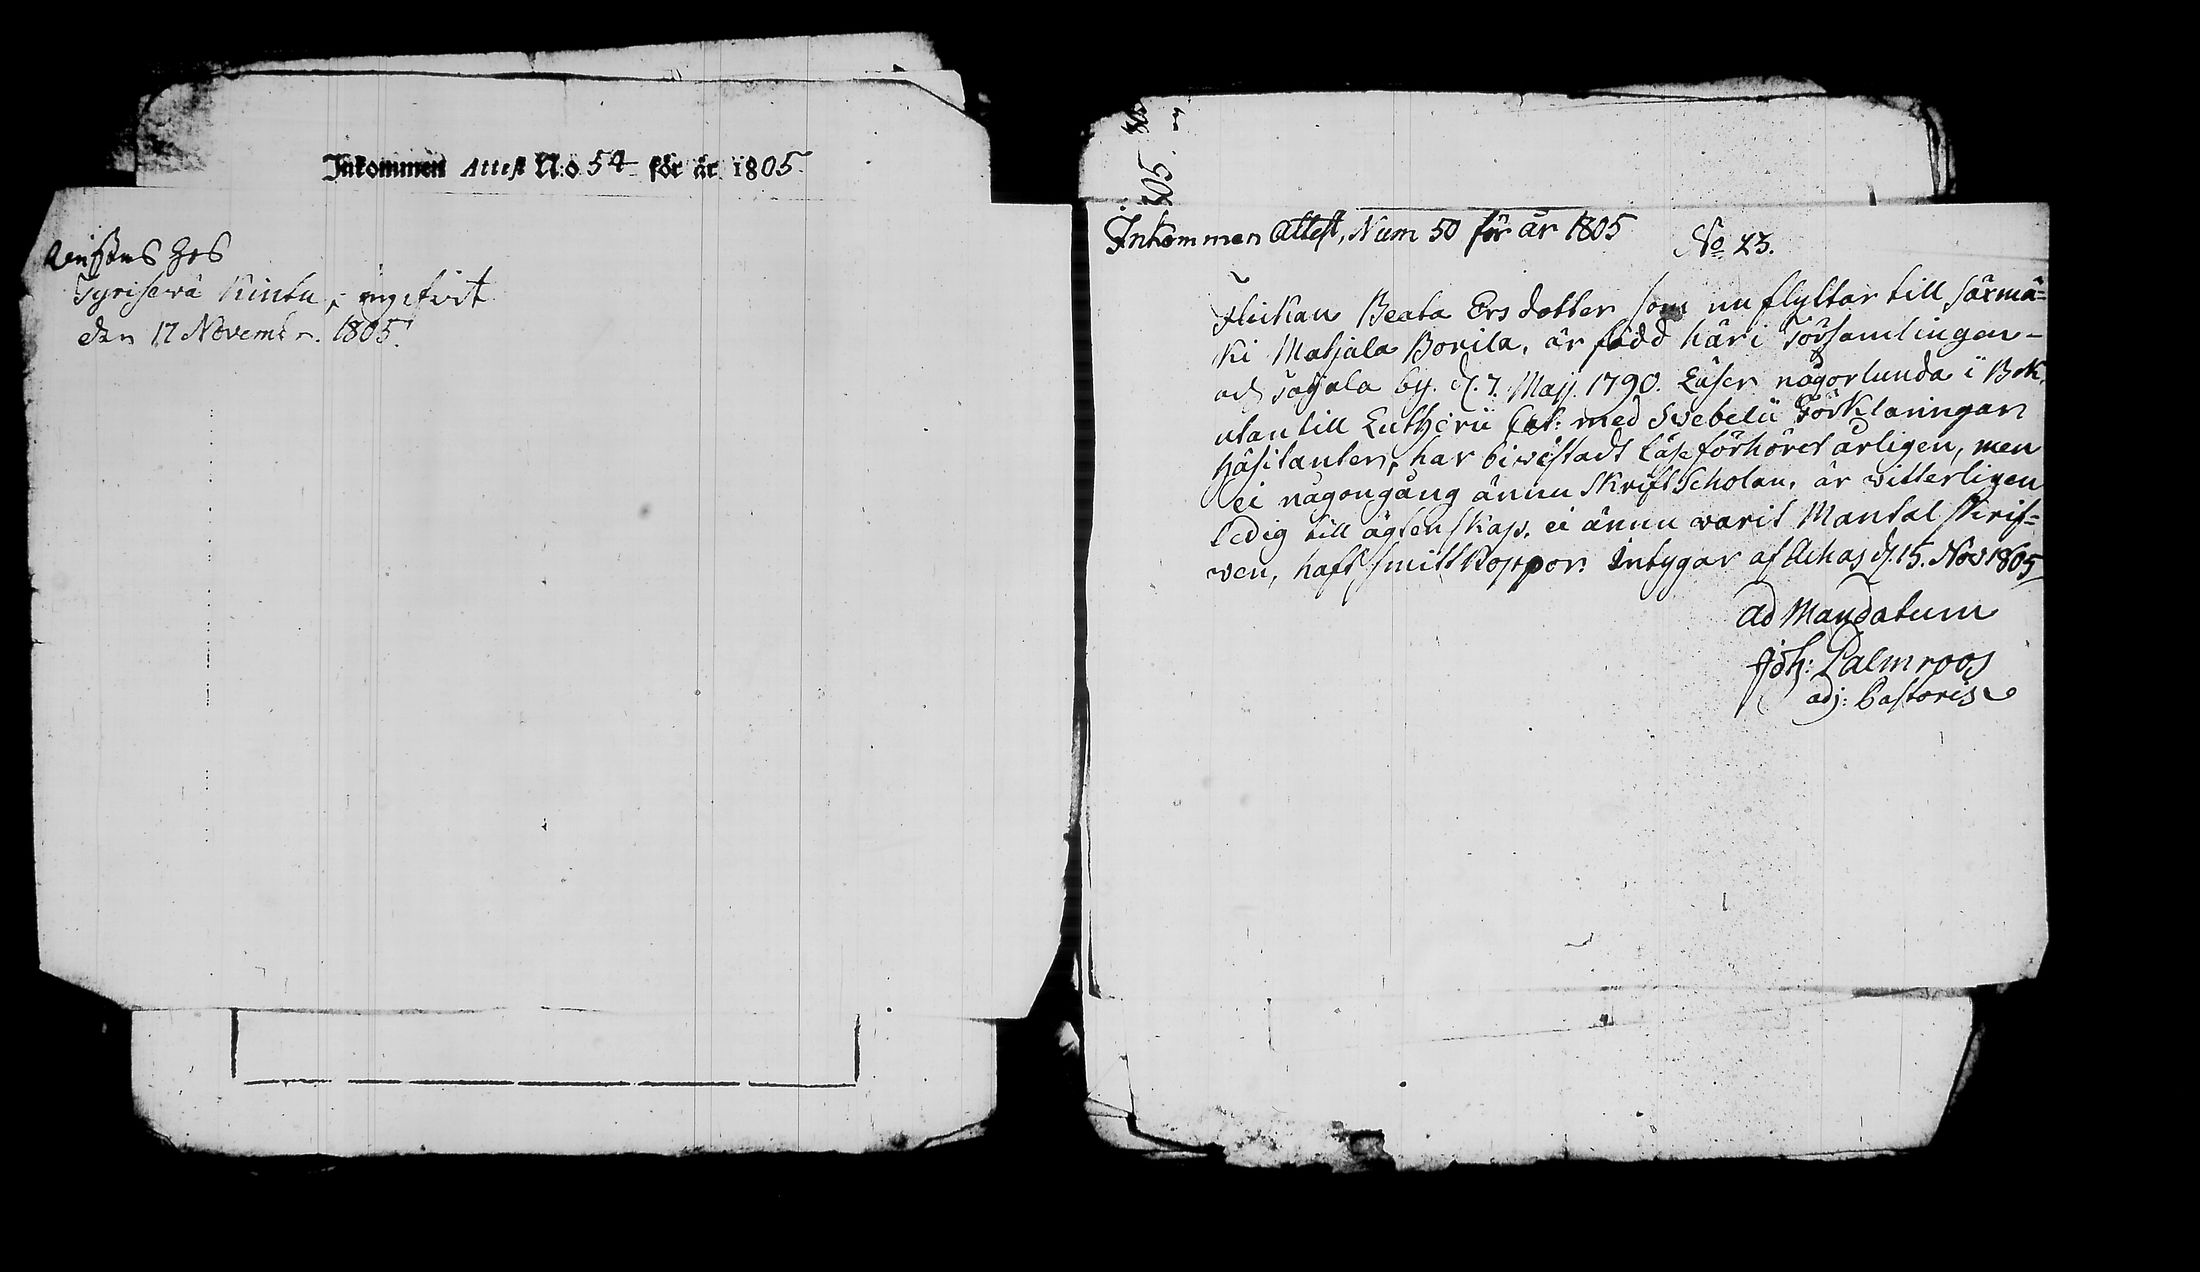 Inkommen Attest N:o 54 för år 1805.
hos
Kintu, ingifwit
den 17 Novembr. 1805.
1805.
Inkommen Attest, Num 50 för år 1805
No 23.
Flickan Beata Ersdotter som nu flyttar till Särmä=
ki Matjala Borila, är född här i Församlingen
och Sagala by. d. 7. Maji 1790. Läser någorlunda i Bok,
utan till Lutheri Cat: med Svebelii Förklaringar
häsitanter, har biwistadt Läseförhöret årligen, men
ei någongång ännu SkriftScholan, är witterligen
ledig till ägtenskap, ei ännu warit Mantalskrif=
wen, haft Smittkoppor. Intygar af Achas d. 15. Nov 1805
ad Mandatum
Joh: Palmroos
adj: Pastoris